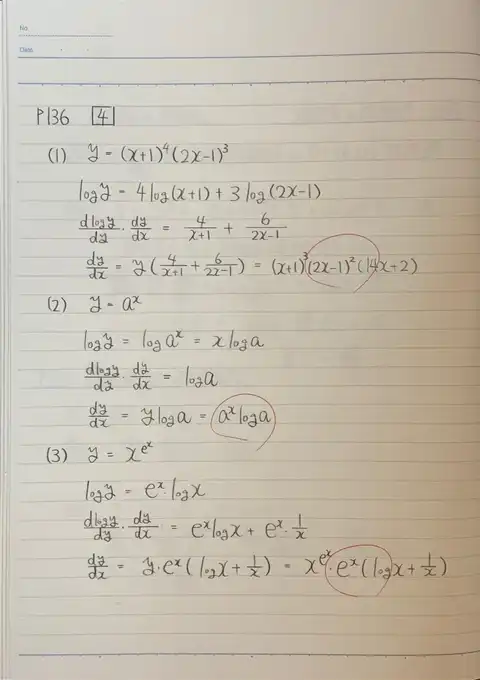 No.
Class
P136 [4]
(1) y = (x+1)⁴(2x-1)³
log y = 4 log(x+1) + 3 log(2x-1)
dlogy/dy · dy/dx = 4/(x+1) + 6/(2x-1)
dy/dx = y(4/(x+1) + 6/(2x-1)) = (x+1)³(2x-1)²(14x+2)
(2) y = aˣ
log y = log aˣ = x log a
dlogy/dy · dy/dx = log a
dy/dx = y log a = aˣ log a
(3) y = x^(eˣ)
log y = eˣ · log x
dlogy/dy · dy/dx = eˣ log x + eˣ · 1/x
dy/dx = y · eˣ(log x + 1/x) = x^(eˣ) · eˣ(log x + 1/x)